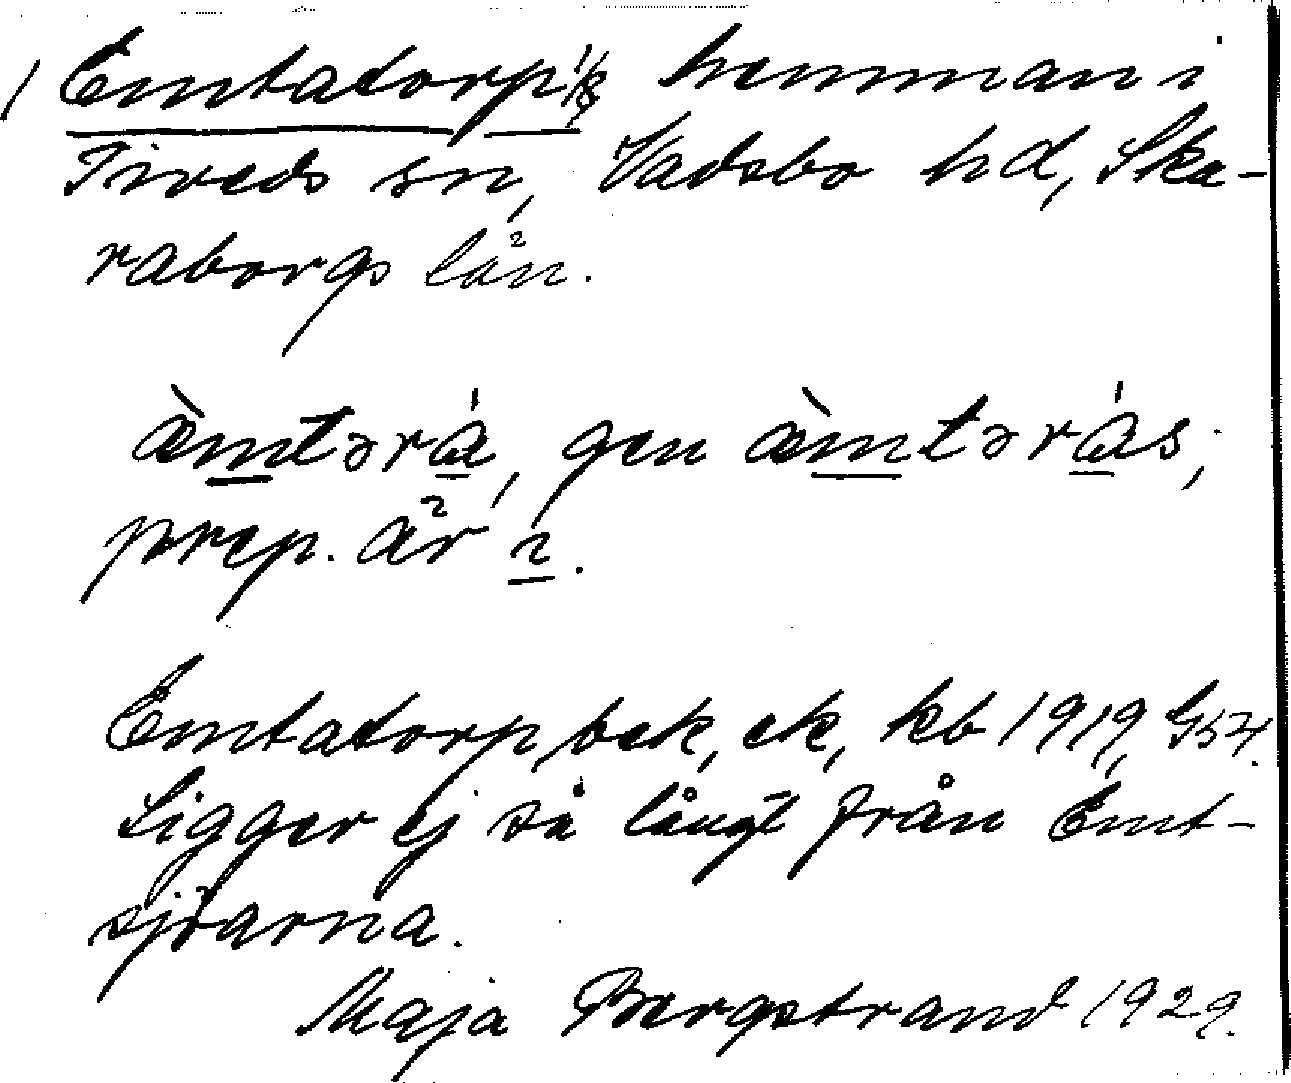 1 Emtatorp 1/8 hemman i
Tiveds sn, Vadsbo hd, Ska-
raborgs län.
æ̀mtərá, gen æ̀mtərás;
prep. är i.
Emtatorp, bek, ek, kb 1919, Gs4.
Ligger ej så långt från Emt-
sjöarna.
Maja Bergstrand 1929.